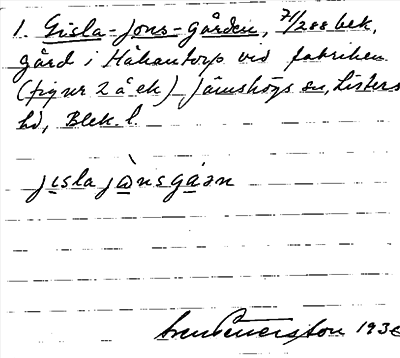 1. Gisla-Jons-gården, 71/288 bek,
gård i Håkantorp vid fabriken
(figur 2 å ek) Jämshögs sn, Listers
hd, Blek. l.
jisla jànsgáən
1936